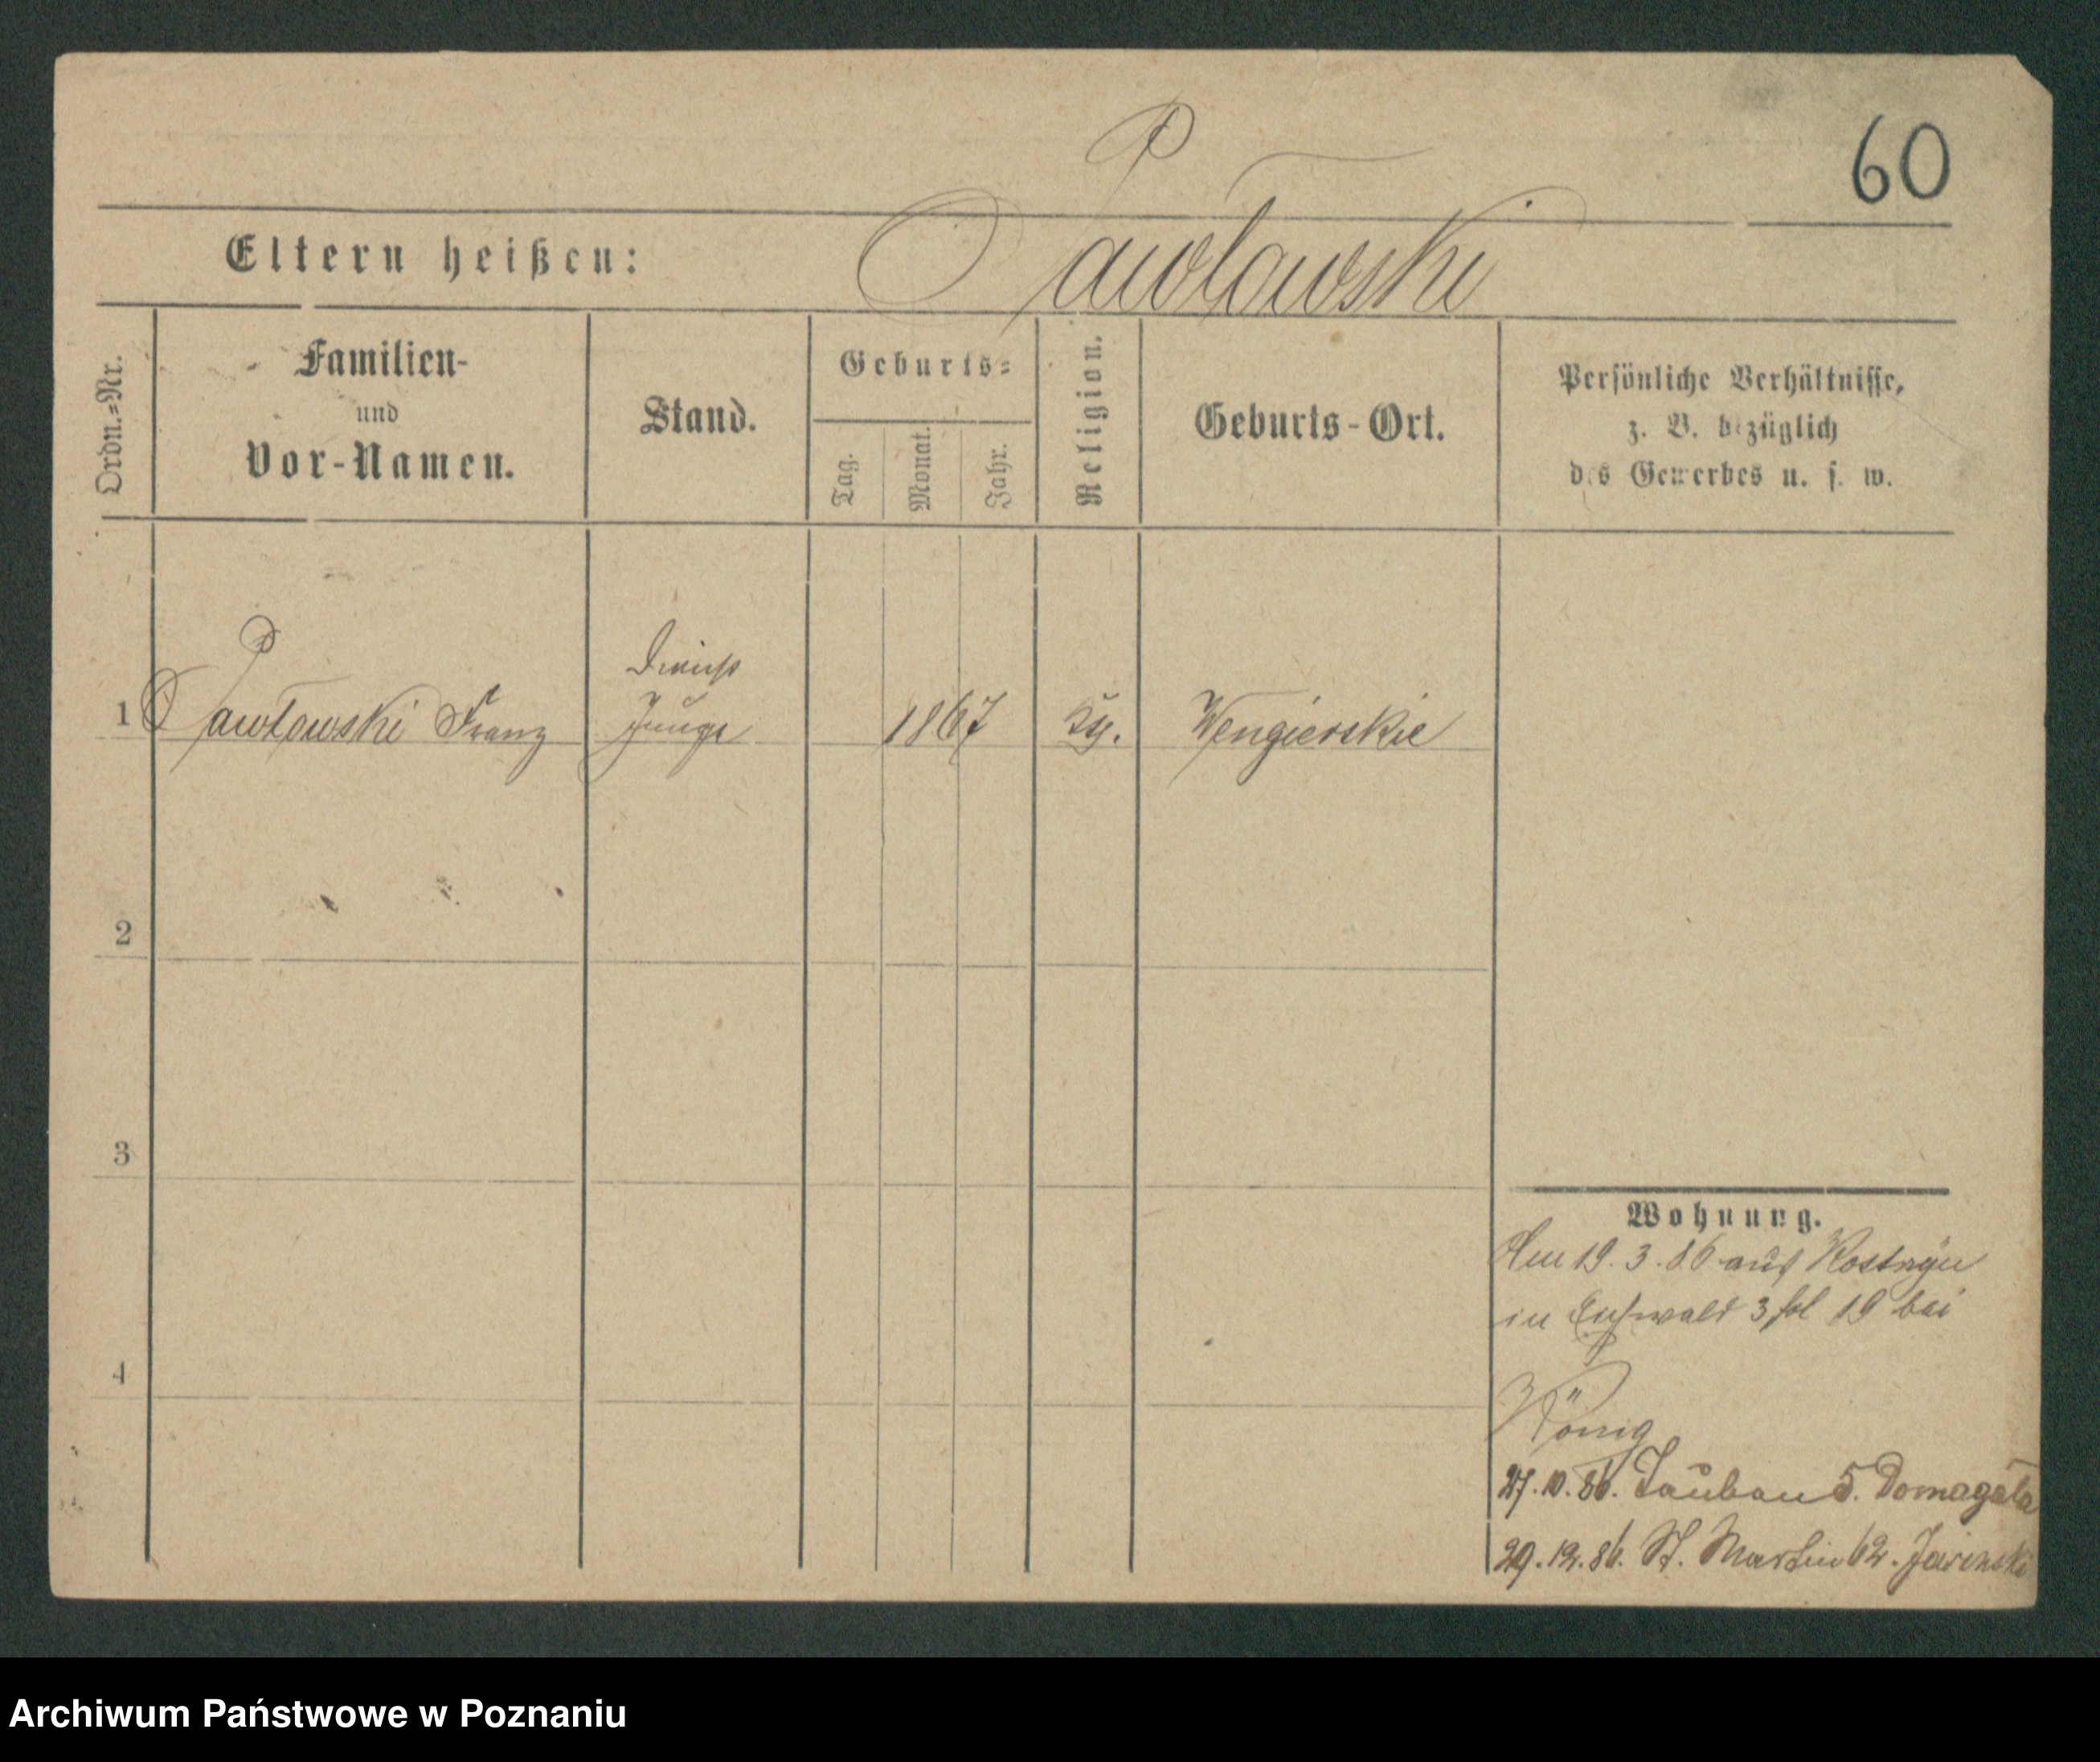 60
Pawłowski
Eltern heißen:
Ordn.=Nr.
Familien-
und
Vor-Namen.
Stand.
Geburts=
Tag.
Monat.
Jahr.
Religion.
Geburts-Ort.
Persönliche Verhältnisse,
z. B. bezüglich
des Gewerbes u. s. w.
1 Pawłowski Franz
Junge 1867 Wengierskie
2
3
4
Wohnung.
Am 19. 3. 86 aus Kostrzyn
in 3 19 bei
König
27. 10. 86. 5. Domagała
29. 12. 86. St. Martin 62.
Archiwum Państwowe w Poznaniu